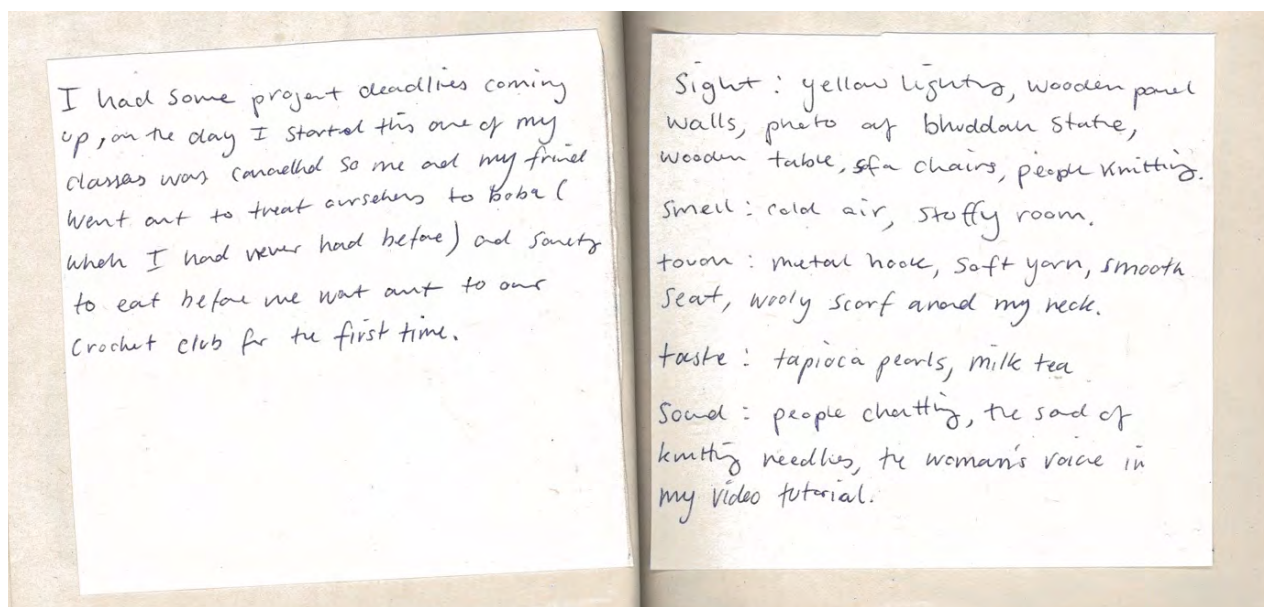 I had some project deadlies coming
up, on the day I started this one of my
classes was cancelled so me and my friend
went out to treat ourselves to boba (
which I had never had before) and somethg
to eat before we went out to our
Crochet club for the first time.
Sight: yellow lighting, wooden panel
walls, photo of bhuddah statue,
wooden table, sofa chairs, people knitting.
Smell: cold air, stuffy room.
touch: metal hook, soft yarn, smooth
seat, wooly scarf around my neck.
taste: tapioca pearls, milk tea
Sound: people chatting, the sound of
knitting needles, the woman's voice in
my video tutorial.